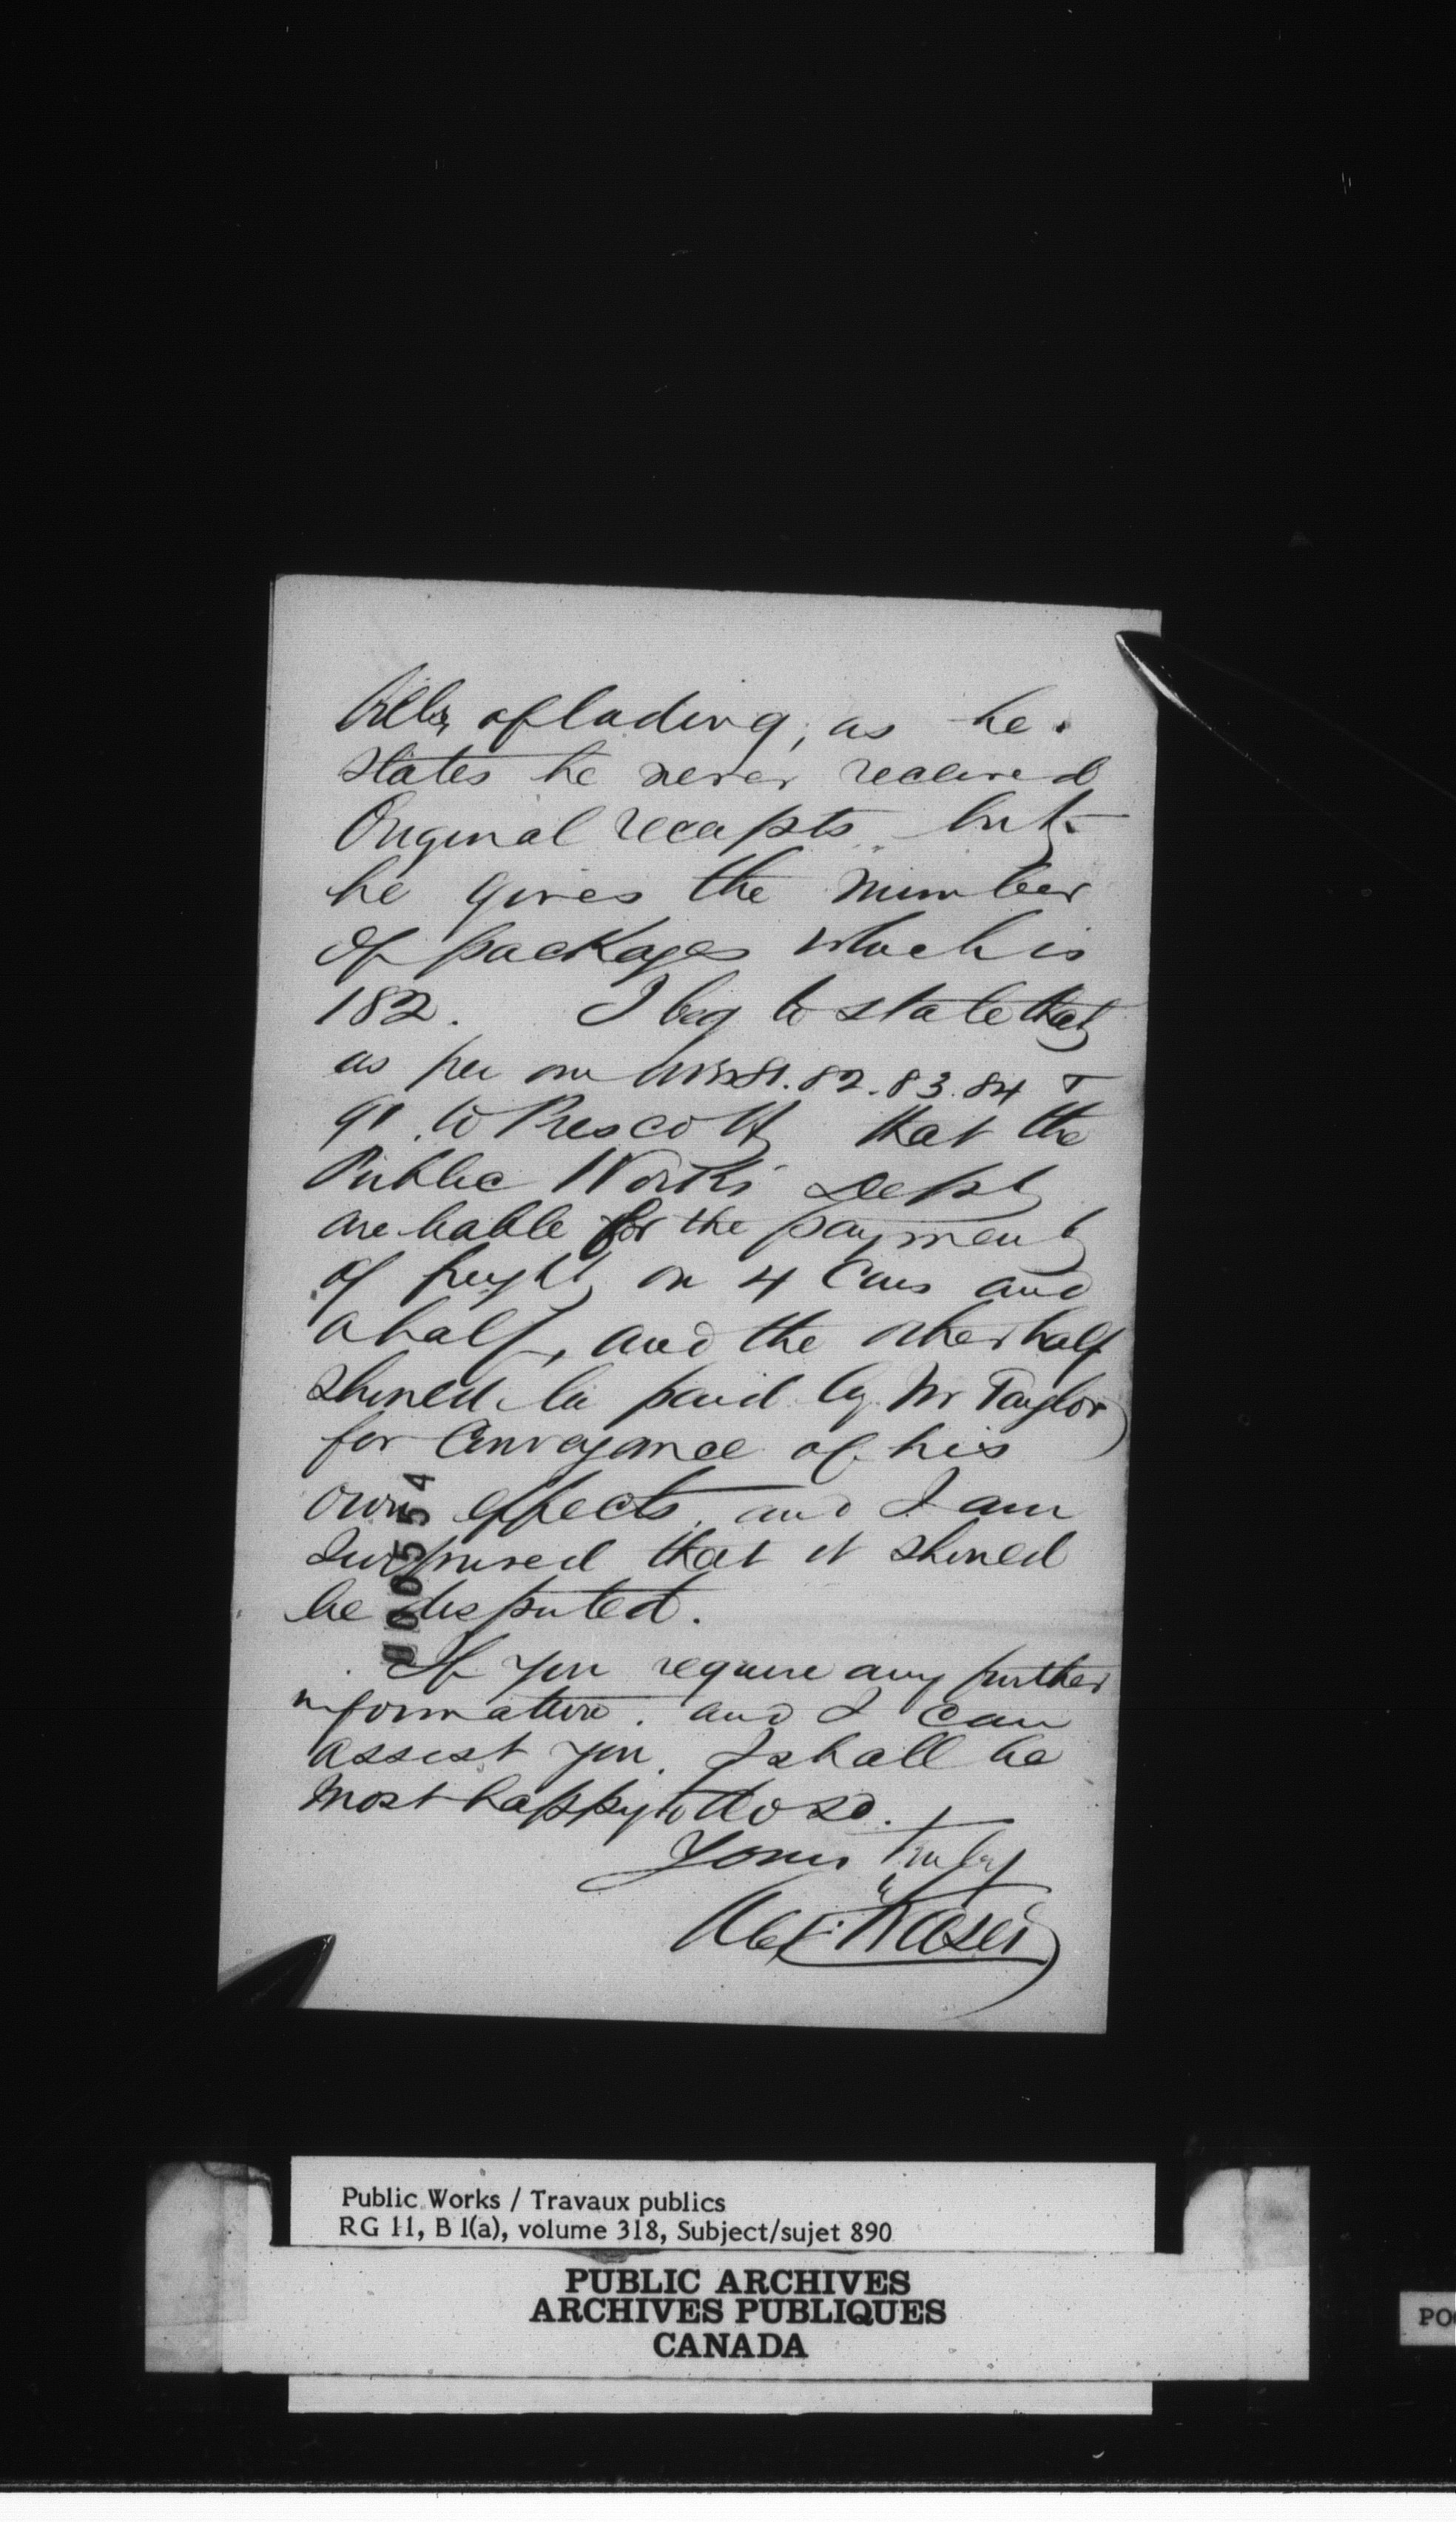 Bills of lading, as he
states he never received
Original receipts but
he gives the number
of packages which is
182. I beg to state that
as per our 81. 82. 83. 84 &
91 to Prescott that the
Public Works Dept
are liable for the payment
of freight on 4 Cars and
a half, and the other half
should be paid by Mr Taylor
for Conveyance of his
own effects, and I am
Surprised that it should
be disputed.
If you require any further
information. and I can
assist you. I shall be
most happy to do so.
Yours truly
Alex: Fraser
000554
Public Works / Travaux publics
RG 11, B 1(a), volume 318, Subject/sujet 890
PUBLIC ARCHIVES
ARCHIVES PUBLIQUES
CANADA